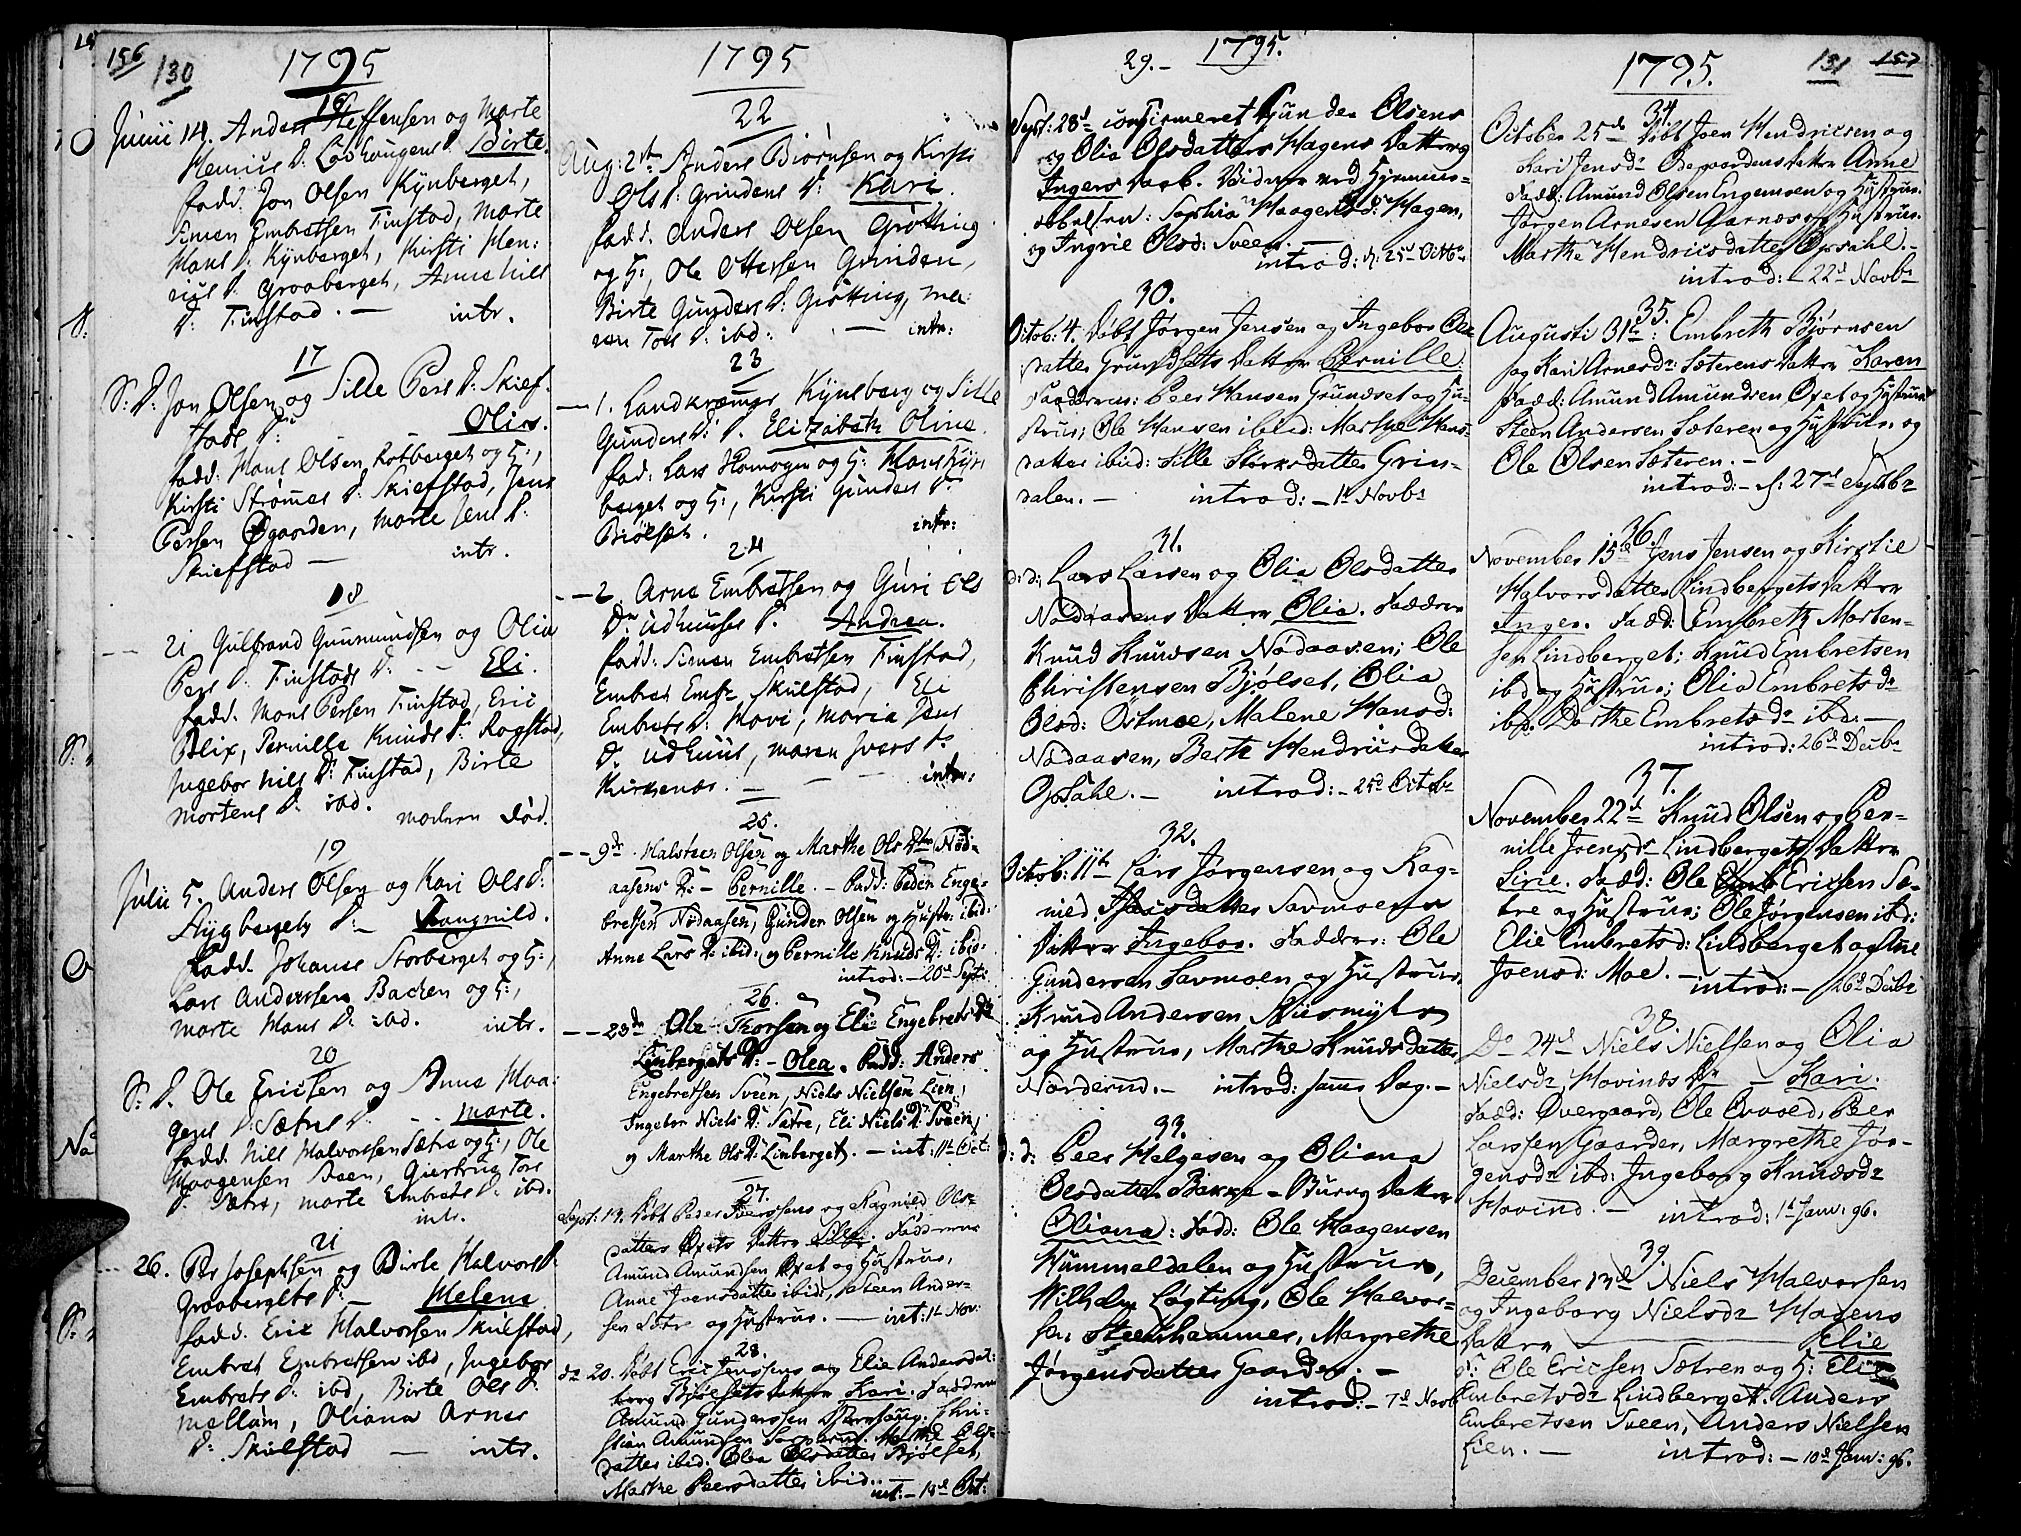 156
130
1795
16
Junii 14. Anders Steffensen og Marte
Henrics D: Løshaugens D: Birte.
fadd. Jon Olsen Kynberget,
Simen Embretsen Finstad, Marte
Hans D: Kynberget, Kirsti Hen:
rics D: Groaberget, Anne Nils
D: Finstad. — intr.
17
S: D: Jon Olsen og Sille Pers D: Skief-
stads D: Olia.
fadd. Hans Olsen Rotberget og H:,
Kirsti Strømes D: Skiefstad, Jens
Persen Øgaarden, Marte Jens D:
Skiefstad — intr.
18
21 Gulbrand Gunmundsen og Olia
Pers D: Finstads D: — Eli.
fadd. Mons Persen Finstad, Eric
Blix, Pernille Knuds D: Rogstad,
Ingebor Nils D: Finstad, Birte
Mortens D: ibd. modern død.
19
Julii 5. Anders Olsen og Kari Ols D:
Flygbergets D: Raugnild.
fadd. Johanes Storberget og H:,
Lars Anderssen Backen og H:,
Marte Hans D: ibd. intr.
20
S: D. Ole Ericsen og Anne Haa:
gens D: Sætres D: — Marte.
fadd. Nils Halvorssen Sætre og H:, Ole
Haagensen Moen, Giertrug Tors
D: Sætre, Marte Embrets D: ibd.
intr.
21
26. Per Josephsen og Birte Halvors D:
Groabergets D: — Helene
fadd. Eric Halvorssen Skulstad,
Embret Embretsen ibd, Ingebor
Embrets D: ibd, Birte Ols D:
Mellum, Oliana Arnes
D: Skulstad — intr.
1795
22
Aug: 2den Anders Biørnsen og Kirsti
Ols D: Grindens D: Kari.
fadd. Anders Olsen Grøtting
og H:, Ole Ottersen Grinden,
Birte Gunders D: Grøtting, Ma:
ren Tors D: ibd: — intr:
23
— 1. Landkræmer Kynsberg og Sille
Gunders D: D. Elizabeth Oline.
fad: Lars Homogen og H: Hans Kyn
berget og H:, Kirsti Gunders D:
Biølset. intr:
24
— 2. Arne Embretsen og Guri Ols
D: Udhuuses D. Andrea.
fadd: Simen Embretsen Finstad,
Embret Embr: Skulstad, Eli
Embrets D: Hovi, Maria Jens
D. Udhuus, Maren Ivers D:
Kirkenær. — intr:
25.
— 9de Halsteen Olsen og Marthe Ols Dtr Nød-
aasens D: — Pernille. — Fadd: Peder Enge-
bretsen Nødaasen, Gunder Olsen og Hustr: ibid:
Anne Lars D: ibid: og Pernille Knuds D: ibid:
introd: — 20d Sept:
26.
— 23de Ole Thorsen og Eli Engebrets Dtr
Linbergets D: — Olea. Fadd: Anders
Engebretsen Sveen, Niels Nielsen Lien,
Ingebor Niels D: Sætre, Eli Niels D: Sveen,
og Marthe Ols D: Linberget. — int: 11te Oct:
27.
Sept: 13. Døbt Peder Iverssens og Ragnild Ols-
datters Øxets Datter Sille. Fadderne
Amund Amundsen Øxet og Hustrue,
Anne Joensdatter ibid:, Steen Ander-
sen Sætre og Hustrue. — int: 1te Nov:
28.
do 20. Døbt Eric Jenssens og Elie Andersdat:
Biølsets datter Kari. Fadderne
Amund Gunderssen
Marthe Ols-
datter ibid: Olea Olsdatter Biølset,
Marthe Peersdatter ibid.
int: — Oct:
1795.
29. —
Sept: 28d confirmeret Gunder Olsens
og Olia Olsdatters Hagens Datter
Ingers Daab. Vidner ved Hjemme-
døbelsen: Sophia Haagensd: Hagen,
og Ingrie Olsd: Sveen. —
introd: d: 25d Octbr
30.
Octob: 4. døbt Jørgen Jensen og Ingebor Ols-
datter Grundsets Datter Pernille.
Fadderne: Peer Hansen Grundset og Hu-
strue; Ole Hansen ibid: Marthe Hans-
datter ibid: Sille Størksdatter Grin-
dalen. — introd: — 1t Novbr
31.
d: d: Lars Larsen og Olia Olsdatter
Nødaasens Datter Olia. Faddere
Knud Knudsen Nødaasen; Ole
Christensen Bjølset, Olia
Olsd: Ostmoe, Malene Hansd:
Nødaasen, Berte Hendricsdatter
Opsahl. — introd: — 25d Octobr
32.
Octob: 11te Lars Jørgensen og Rag-
nied Savmoens
Datter Ingebor. Faddere: Ole
Gundersen Savmoen og Hustrue,
Knud Andersen Musmyhr
og Hustrue, Marthe Knudsdatter
Norderud. — introd: samme Dag. —
33.
d: d: Peer Helgesen og Oliana
Olsdatter Bakke-Burug Datter
Oliana: Fadd: Ole Haagensen
Hummeldalen og Hustrue,
Wilhelm Løgting, Ole Halvor-
sen Steenhammer, Margrethe
Jørgensdatter Gaarder. —
introd: — 7d Novb:
1795.
131 157
34.
October 25de døbt Joen Hendricsen og
Kari Jensdr Øegaardens datter Anne
Fadd: Amund Olsen Engemoen og Hustrue.
Jørgen Arnesen Aarnæs og Hustrue.
Marthe Hendricsdatter Opsahl. —
introd: — 22d Novbr
35.
Augusti 31te: Embreth Bjørnsen
og Kari Arnesdr Sæterens datter Karen
Fadd: Amund Amundsen Øxet og Hustrue
Steen Andersen Sæteren og Hustrue og
Ole Olsen Sæteren. —
introd: — d: 27d Septbr
36.
November 15de Jens Jensen og Kirstie
Halvorsdatter Lindbergets datter
Inger. Fadd: Embreth Morten-
sen Lindberget; Knud Embretsen
ibd og Hustrue; Olia Embretsdr
ibd. Dorthe Embretsdr ibd: —
introd: 26d Decbr
37.
November 22d Knud Olsen og Per-
nille Joensdr Lindbergets datter
Sirie. Fadd: Ole Ericsen Sæ-
tre og Hustrue; Ole Jørgensen ibd:
Elie Embretsd: Lindberget og Ane
Joensd: Moe. — introd: — 26d Decbr
38
Do 24d Niels Nielsen og Olia
Nielsdr Hovinds Dr — Kari.
Fadd: Overgaard, Ole Qvoled, Peer
Larssen Gaarder, Margrethe Jør-
gensdr ibd: Ingeborg Knudsdr
Hovind. — introd: 1t Janv: 96.
39.
December 13de Niels Halvorsen
og Ingeborg Nielsdr Hagens
datter — Elie
F: Ole Ericsen Sætren og H: Elie
Embretsdr Lindberget. Anders
Embretsen Sveen, Anders Nielsen
Lien. — introd: — 10d Janv: 96.